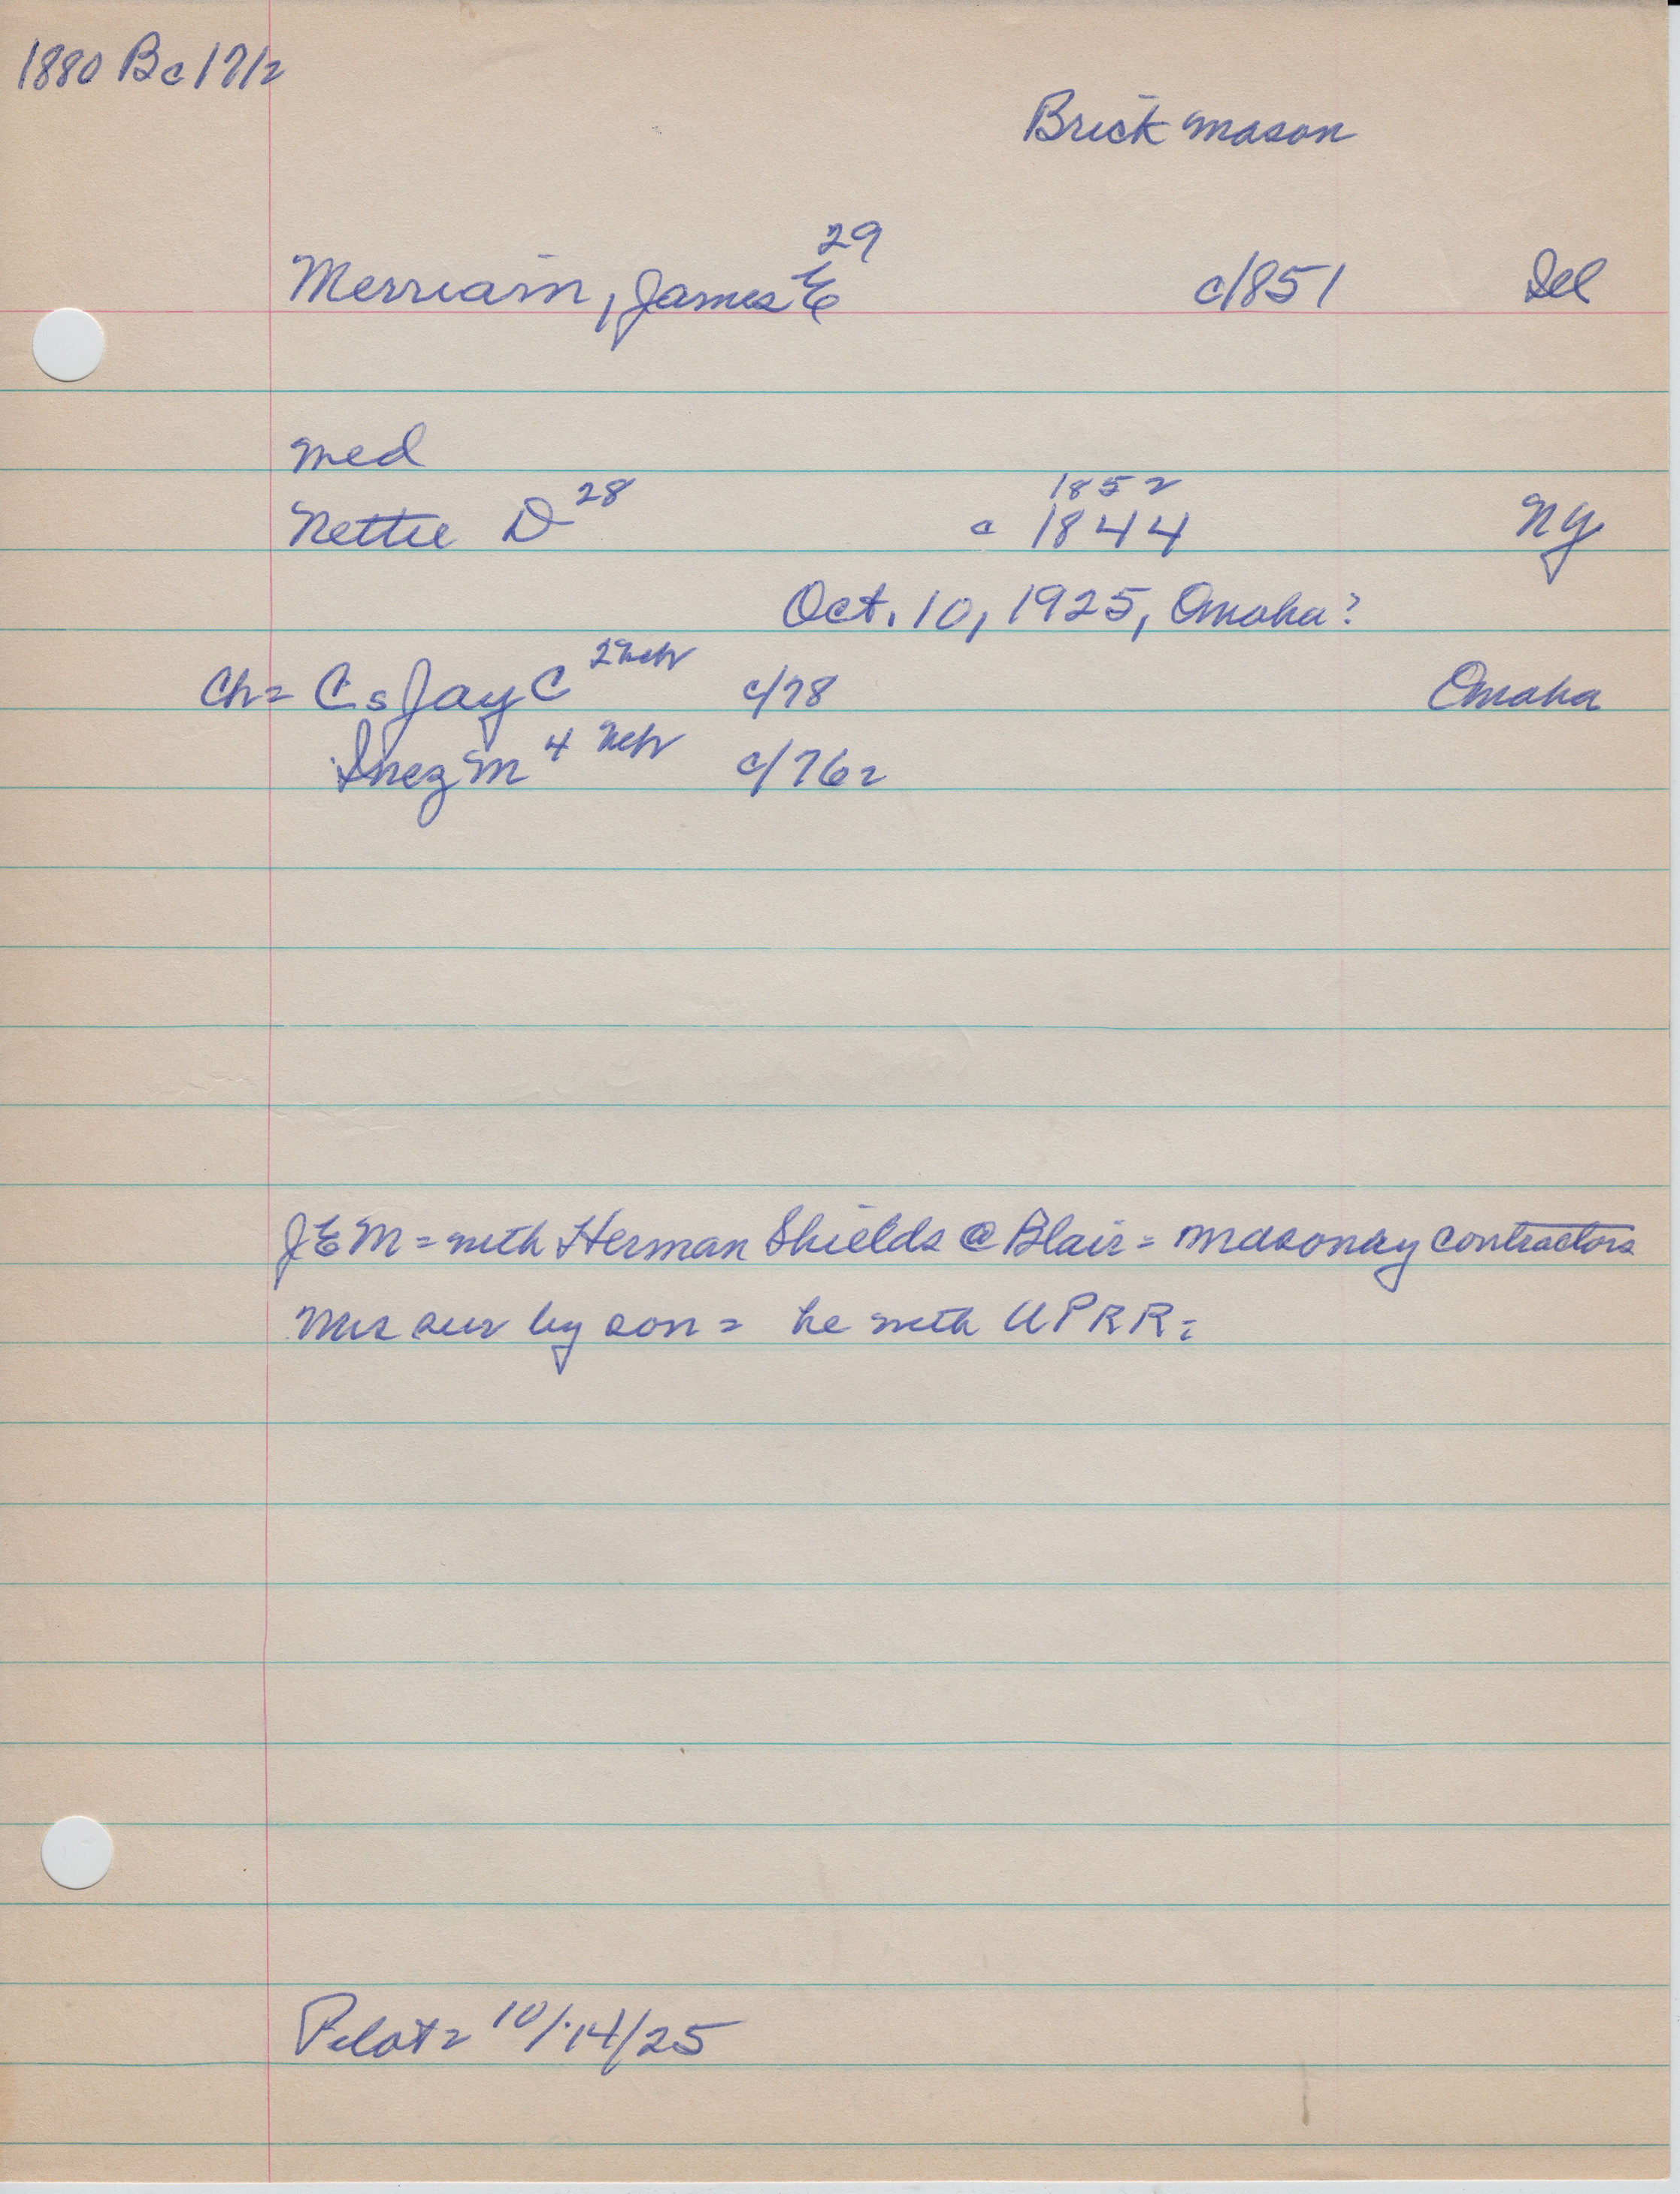 1880 Bc 17/2
Brick mason
29
Merriam, James E c/851 Del
med
28 1852
Nettie D c 1844 NY
Oct. 10, 1925, Omaha?
2 Neb
Ch= Cs Jay C c/78 Omaha
4 Neb
Inez M c/76=
JEM = with Herman Shields @ Blair = masonry contractors
Mrs sur by son = he with UPRR=
Pilot= 10/14/25